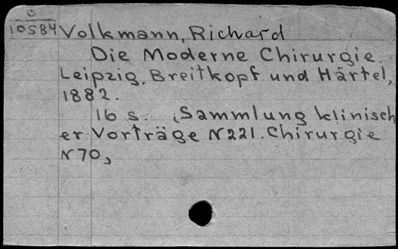 10584 Volkmann, Richard
Die Moderne Chirurgie.
Leipzig, Breitkopf und Härtel,
1882.
16 s. (Sammlung klinisch
er Vorträge N221. Chirurgie
N70,